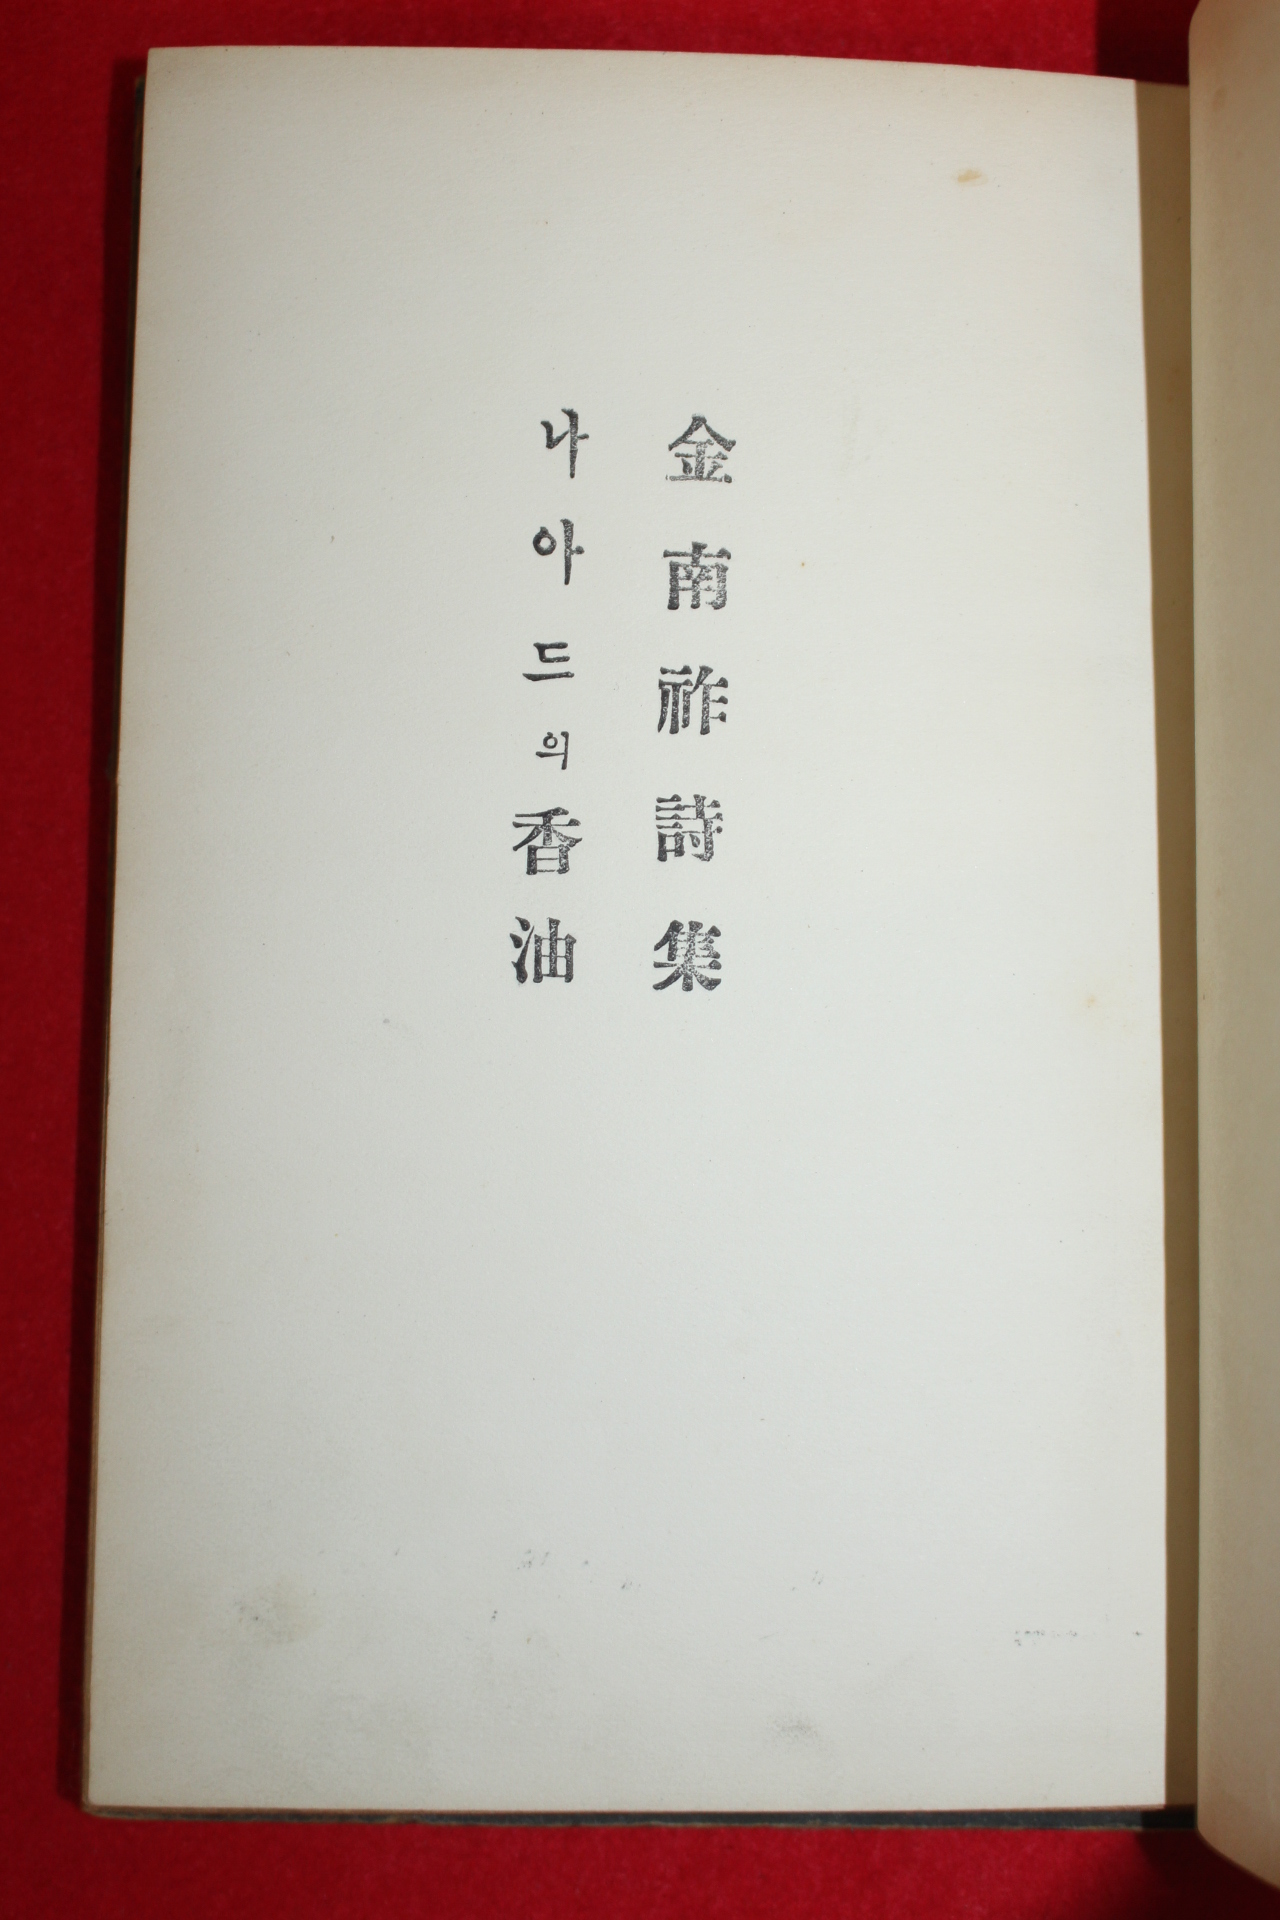 金南祚詩集
나아드의香油